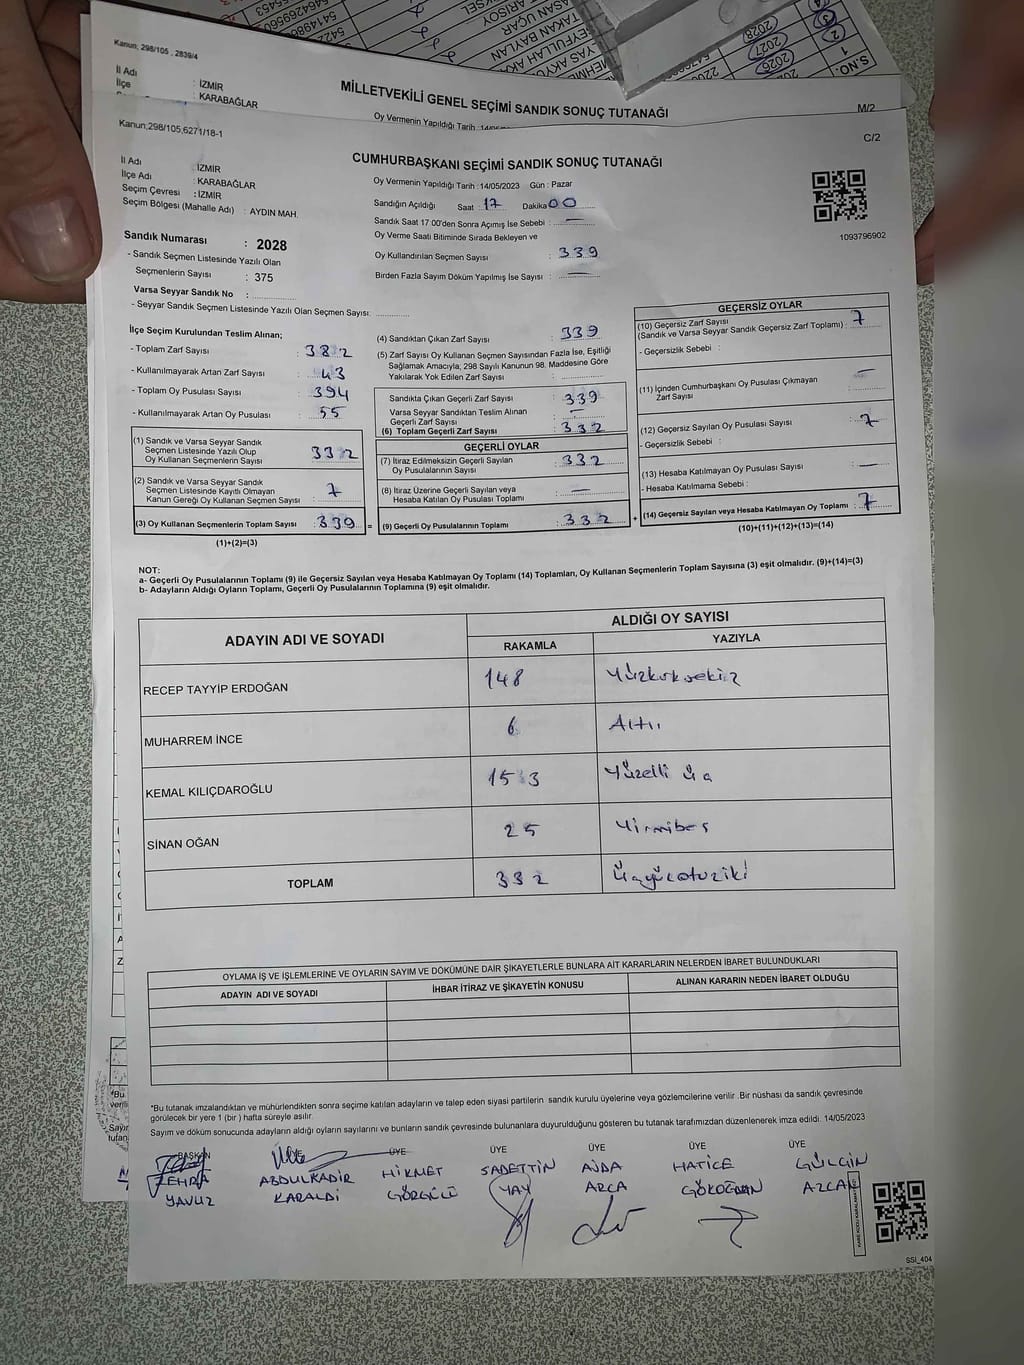 Kanun; 298/105 , 2839/4
İl Adı : İZMİR
İlçe : KARABAĞLAR
MİLLETVEKİLİ GENEL SEÇİMİ SANDIK SONUÇ TUTANAĞI
M/2
Oy Vermenin Yapıldığı Tarih
Kanun;298/105,6271/18-1
C/2
CUMHURBAŞKANI SEÇİMİ SANDIK SONUÇ TUTANAĞI
İl Adı : İZMİR
İlçe Adı : KARABAĞLAR
Seçim Çevresi : İZMİR
Seçim Bölgesi (Mahalle Adı) : AYDIN MAH.
Oy Vermenin Yapıldığı Tarih :14/05/2023 Gün : Pazar
Sandığın Açıldığı Saat : 17 Dakika 00
Sandık Saat 17:00'den Sonra Açımış İse Sebebi : —
Oy Verme Saati Bitiminde Sırada Bekleyen ve
Oy Kullandırılan Seçmen Sayısı : 339
Birden Fazla Sayım Döküm Yapılmış İse Sayısı : —
1093796902
Sandık Numarası : 2028
- Sandık Seçmen Listesinde Yazılı Olan
Seçmenlerin Sayısı : 375
Varsa Seyyar Sandık No :
- Seyyar Sandık Seçmen Listesinde Yazılı Olan Seçmen Sayısı:
İlçe Seçim Kurulundan Teslim Alınan;
- Toplam Zarf Sayısı : 382
- Kullanılmayarak Artan Zarf Sayısı : 43
- Toplam Oy Pusulası Sayısı : 394
- Kullanılmayarak Artan Oy Pusulası : 55
(1) Sandık ve Varsa Seyyar Sandık
Seçmen Listesinde Yazılı Olup
Oy Kullanan Seçmenlerin Sayısı : 332
(2) Sandık ve Varsa Seyyar Sandık
Seçmen Listesinde Kayıtlı Olmayan
Kanun Gereği Oy Kullanan Seçmen Sayısı : 7
(3) Oy Kullanan Seçmenlerin Toplam Sayısı : 339 =
(1)+(2)=(3)
(4) Sandıktan Çıkan Zarf Sayısı : 339
(5) Zarf Sayısı Oy Kullanan Seçmen Sayısından Fazla İse, Eşitliği
Sağlamak Amacıyla; 298 Sayılı Kanunun 98. Maddesine Göre
Yakılarak Yok Edilen Zarf Sayısı :
Sandıkta Çıkan Geçerli Zarf Sayısı : 339
Varsa Seyyar Sandıktan Teslim Alınan
Geçerli Zarf Sayısı : —
(6) Toplam Geçerli Zarf Sayısı : 332
GEÇERLİ OYLAR
(7) İtiraz Edilmeksizin Geçerli Sayılan
Oy Pusulalarının Sayısı : 332
(8) İtiraz Üzerine Geçerli Sayılan veya
Hesaba Katılan Oy Pusulası Toplamı : —
(9) Geçerli Oy Pusulalarının Toplamı : 332 +
GEÇERSİZ OYLAR
(10) Geçersiz Zarf Sayısı
(Sandık ve Varsa Seyyar Sandık Geçersiz Zarf Toplamı) : 7
- Geçersizlik Sebebi :
(11) İçinden Cumhurbaşkanı Oy Pusulası Çıkmayan
Zarf Sayısı : —
(12) Geçersiz Sayılan Oy Pusulası Sayısı : 7
- Geçersizlik Sebebi :
(13) Hesaba Katılmayan Oy Pusulası Sayısı : —
- Hesaba Katılmama Sebebi :
(14) Geçersiz Sayılan veya Hesaba Katılmayan Oy Toplamı : 7
(10)+(11)+(12)+(13)=(14)
NOT:
a- Geçerli Oy Pusulalarının Toplamı (9) ile Geçersiz Sayılan veya Hesaba Katılmayan Oy Toplamı (14) Toplamları, Oy Kullanan Seçmenlerin Toplam Sayısına (3) eşit olmalıdır. (9)+(14)=(3)
b- Adayların Aldığı Oyların Toplamı, Geçerli Oy Pusulalarının Toplamına (9) eşit olmalıdır.
ADAYIN ADI VE SOYADI
ALDIĞI OY SAYISI
RAKAMLA YAZIYLA
RECEP TAYYİP ERDOĞAN 148 Yüzkırksekiz
MUHARREM İNCE 6 Altı
KEMAL KILIÇDAROĞLU 153 Yüzelli üç
SİNAN OĞAN 25 Yirmibeş
TOPLAM 332 Üçyüzotuziki
OYLAMA İŞ VE İŞLEMLERİNE VE OYLARIN SAYIM VE DÖKÜMÜNE DAİR ŞİKAYETLERLE BUNLARA AİT KARARLARIN NELERDEN İBARET BULUNDUKLARI
ADAYIN ADI VE SOYADI İHBAR İTİRAZ VE ŞİKAYETİN KONUSU ALINAN KARARIN NEDEN İBARET OLDUĞU
*Bu tutanak imzalandıktan ve mühürlendikten sonra seçime katılan adayların ve talep eden siyasi partilerin sandık kurulu üyelerine veya gözlemcilerine verilir .Bir nüshası da sandık çevresinde
görülecek bir yere 1 (bir ) hafta süreyle asılır.
Sayım ve döküm sonucunda adayların aldığı oyların sayılarını ve bunların sandık çevresinde bulunanlara duyurulduğunu gösteren bu tutanak tarafımızdan düzenlenerek imza edildi. 14/05/2023
BAŞKAN ÜYE ÜYE ÜYE ÜYE ÜYE ÜYE
ZEHRA ABDULKADİR HİKMET SADETTİN AJDA HATİCE GÜLGİN
YAVUZ KARALDİ GÖRGÜLÜ YAY ARCA GÖKOĞLAN AZCAN
SSI_404